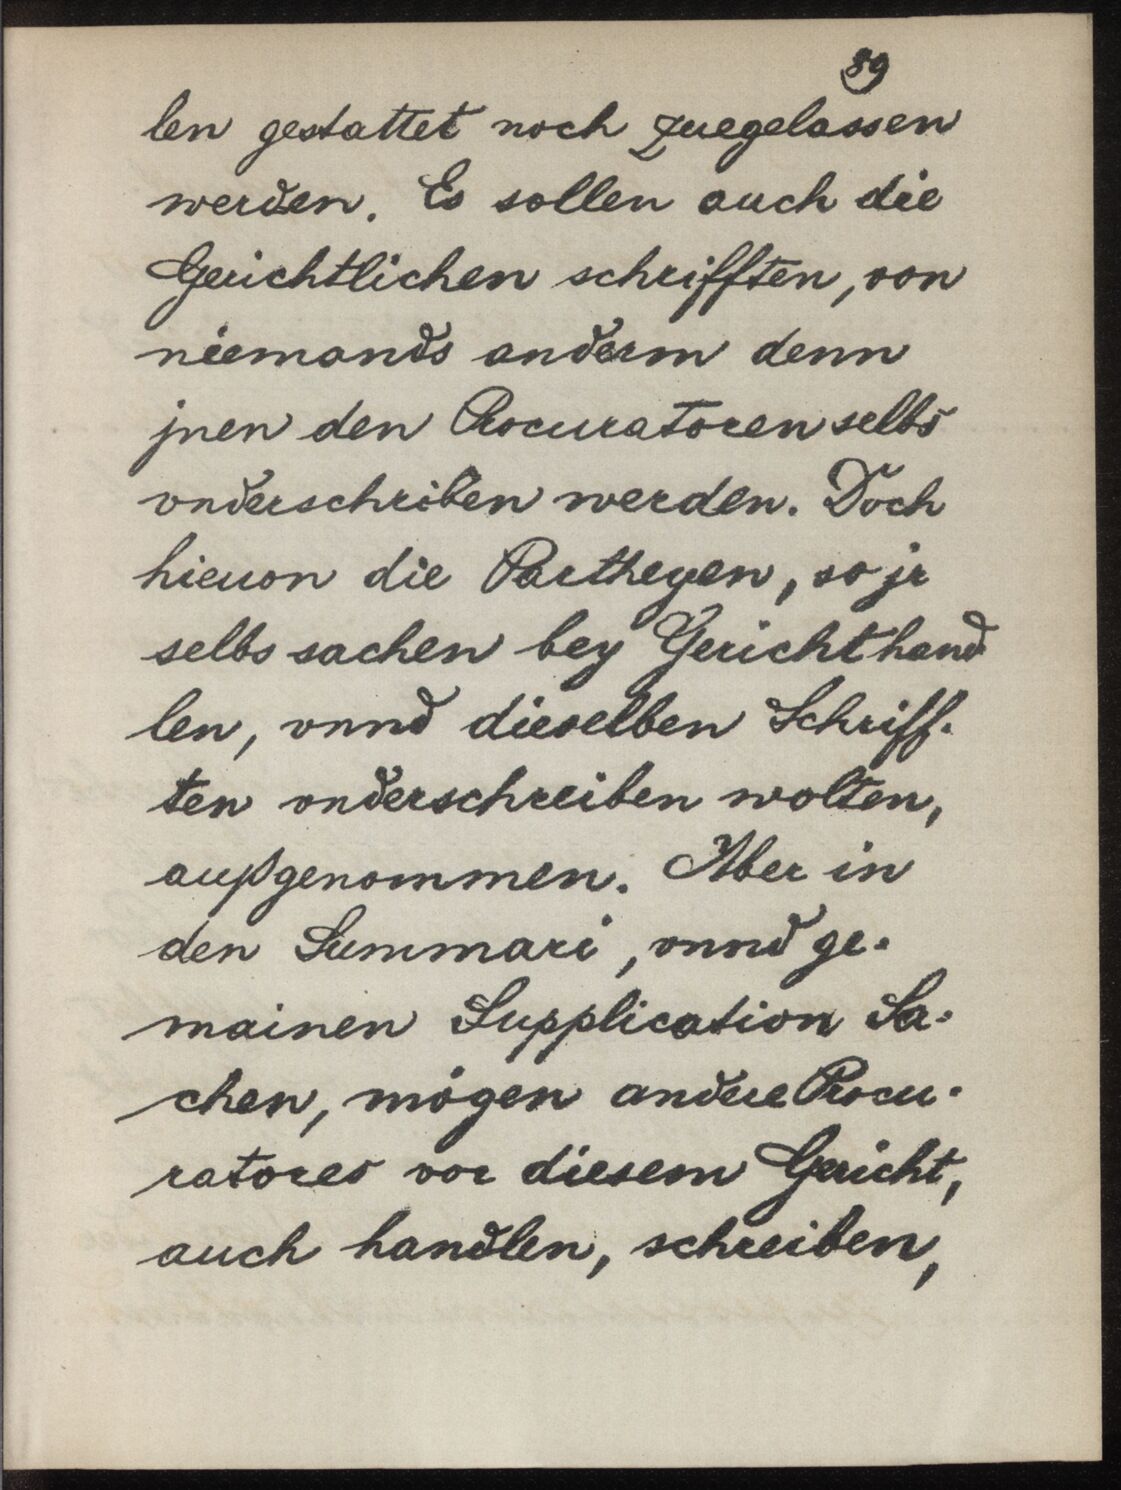 89
len gestattet noch zuegelassen
werden. Es sollen auch die
Gerichtlichen schrifften, von
niemands anderm denn
jnen den Procuratoren selbs
vnderschriben werden. Doch
hieuon die Partheyen, so jr
selbs sachen bey Gericht hand
len, vnnd dieselben Schriff-
ten vnderschreiben wolten,
außgenommen. Aber in
den Summari, vnnd ge-
mainen Supplication Sa-
chen, mögen andere Procu-
ratores vor diesem Gericht,
auch handlen, schreiben,